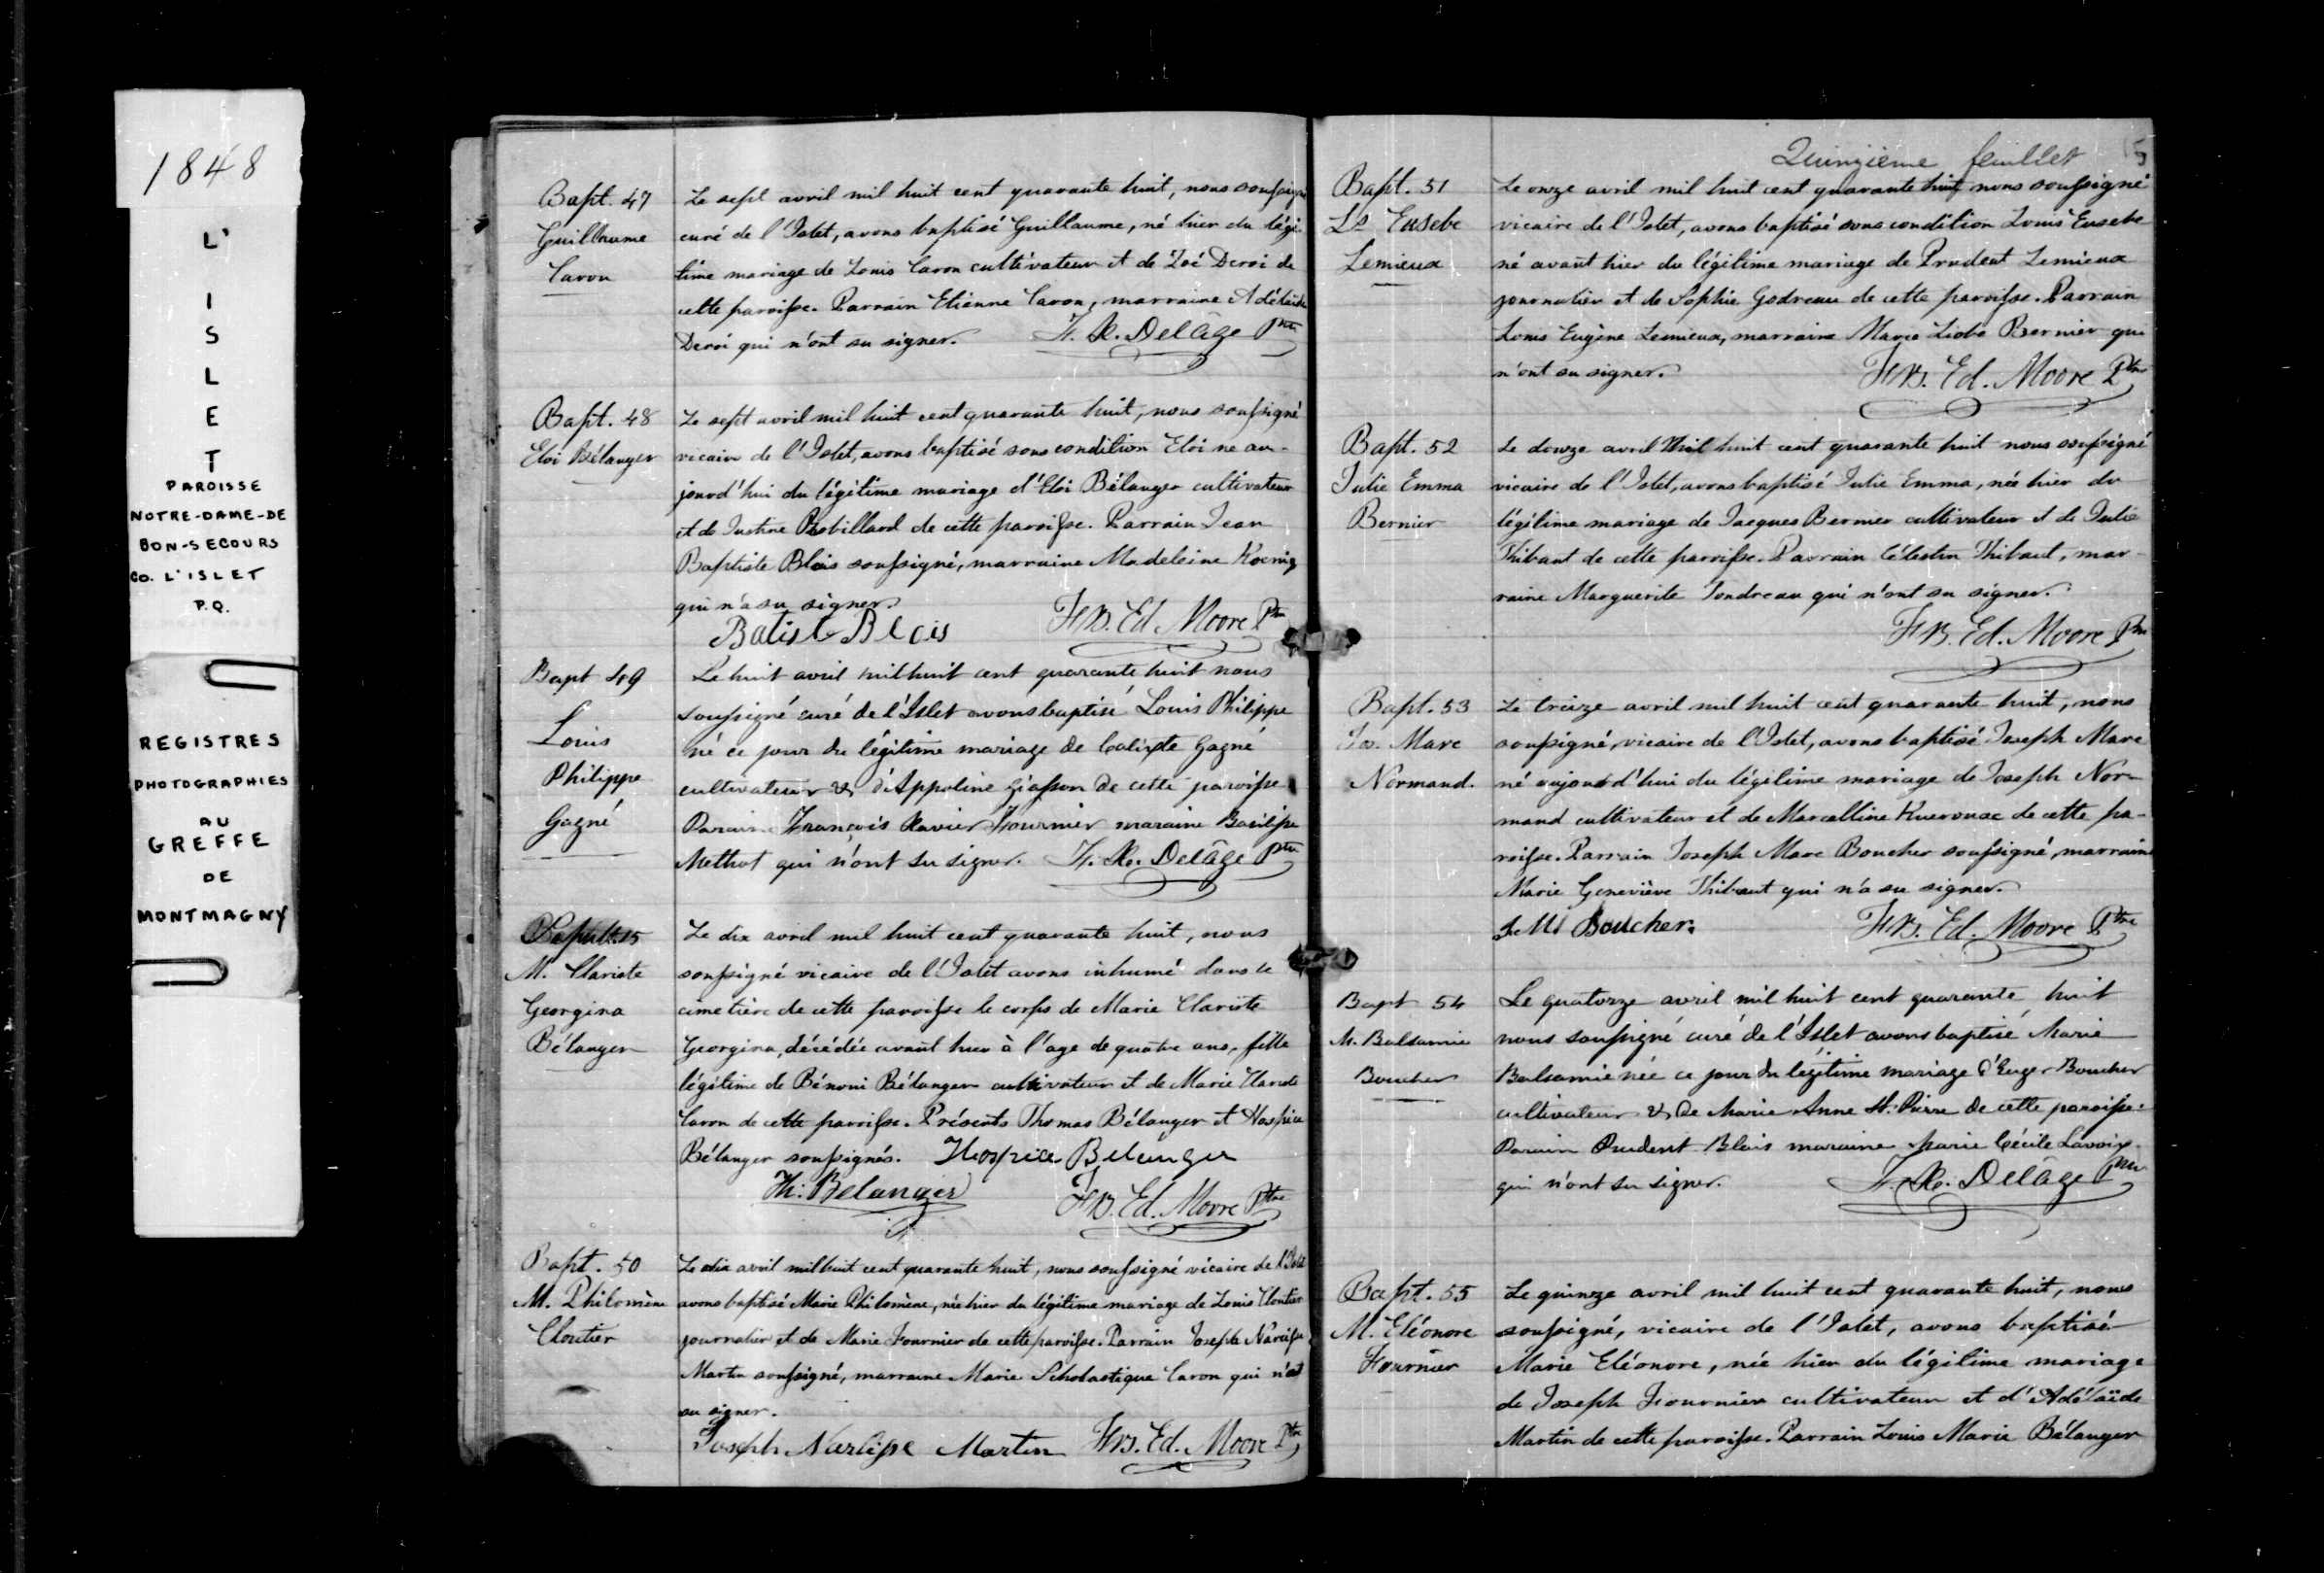 1848
L'
I
S
L
E
T
PAROISSE
NOTRE-DAME-DE
BON-SECOURS
CO. L'ISLET
P.Q.
REGISTRES
PHOTOGRAPHIES
AU
GREFFE
DE
MONTMAGNY
Bapt. 47
Guillaume
Caron
Le sept avril mil huit cent quarante huit, nous soussigné
curé de l'Islet, avons baptisé Guillaume, né hier du légi-
time mariage de Louis Caron cultivateur et de Zoé Deroi de
cette paroisse. Parrain Etienne Caron, marraine Adélaïde
Deroi qui n'ont su signer. F. X. Delâge Ptre
Bapt. 48
Eloi Bélanger
Le sept avril mil huit cent quarante huit, nous soussigné
vicaire de l'Islet, avons baptisé sous condition Eloi né au-
jourd'hui du légitime mariage d'Eloi Bélanger cultivateur
et de Justine Robillard de cette paroisse. Parrain Jean
Baptiste Blais soussigné, marraine Madeleine Koenig
qui n'a su signer.
Batist Blais Frs. Ed. Moore Ptre
Bapt 49
Louis
Philippe
Gagné
Le huit avril mil huit cent quarante huit nous
soussigné curé de l'Islet avons baptisé Louis Philippe
né ce jour du légitime mariage de Calixte Gagné
cultivateur & d'Appoline Giasson de cette paroisse
Parain François Xavier Fournier maraine Basilisse
Methot qui n'ont su signer. F. X. Delâge Ptre
M. Clariste
Georgina
Bélanger
Le dix avril mil huit cent quarante huit, nous
soussigné vicaire de l'Islet avons inhumé dans le
cimetière de cette paroisse le corps de Marie Clariste
Georgina, décédée avant hier à l'age de quatre ans, fille
légitime de Bénoni Bélanger cultivateur et de Marie Clariste
Caron de cette paroisse. Présents Thomas Bélanger et Hospice
Bélanger soussignés. Hospice Belanger
Th. Belanger Frs. Ed. Moore Ptre
Bapt. 50
M. Philomène
Cloutier
Le dix avril mil huit cent quarante huit, nous soussigné vicaire de l'Islet
avons baptisé Marie Philomène, née hier du légitime mariage de Louis Cloutier
journalier et de Marie Fournier de cette paroisse. Parrain Joseph Narcisse
Martin soussigné, marraine Marie Scholastique Caron qui n'a
su signer.
Joseph Narcisse Martin Frs. Ed. Moore Ptre
Quinzième feuillet
Bapt. 51
Ls Eusebe
Lemieux
Le onze avril mil huit cent quarante huit nous soussigné
vicaire de l'Islet, avons baptisé sous condition Louis Eusebe
né avant hier du légitime mariage de Prudent Lemieux
journalier et de Sophie Godreau de cette paroisse. Parrain
Louis Eugène Lemieux, marraine Marie Bernier qui
n'ont su signer. Frs. Ed. Moore Ptre
Bapt. 52
Julie Emma
Bernier
Le douze avril mil huit cent quarante huit nous soussigné
vicaire de l'Islet, avons baptisé Julie Emma, née hier du
légitime mariage de Jacques Bernier cultivateur et de Julie
Thibaut de cette paroisse. Parrain Célestin Thibaut, mar-
raine Marguerite Jondreau qui n'ont su signer.
Frs. Ed. Moore Ptre
Bapt. 53
Jos. Marc
Normand.
Le treize avril mil huit cent quarante huit, nous
soussigné, vicaire de l'Islet, avons baptisé Joseph Marc
né aujourd'hui du légitime mariage de Joseph Nor-
mand cultivateur et de Marcelline Kuerouac de cette pa-
roisse. Parrain Joseph Marc Boucher soussigné, marraine
Marie Geneviève Thibaut qui n'a su signer.
J. M. Boucher Frs. Ed. Moore Ptre
Bapt 54
M. Balsamie
Boucher
Le quatorze avril mil huit cent quarante huit
nous soussigné curé de l'Islet avons baptisé Marie
Balsamie née ce jour du légitime mariage d'Euger Boucher
cultivateur & de Marie Anne St. Pierre de cette paroisse.
Parain Prudent Blais maraine Marie Cécile Lavoix
qui n'ont su signer. F. X. Delâge Ptre
Bapt. 55
M. Eléonore
Fournier
Le quinze avril mil huit cent quarante huit, nous
soussigné, vicaire de l'Islet, avons baptisé
Marie Eléonore, née hier du légitime mariage
de Joseph Fournier cultivateur et d'Adélaïde
Martin de cette paroisse. Parrain Louis Marie Bélanger